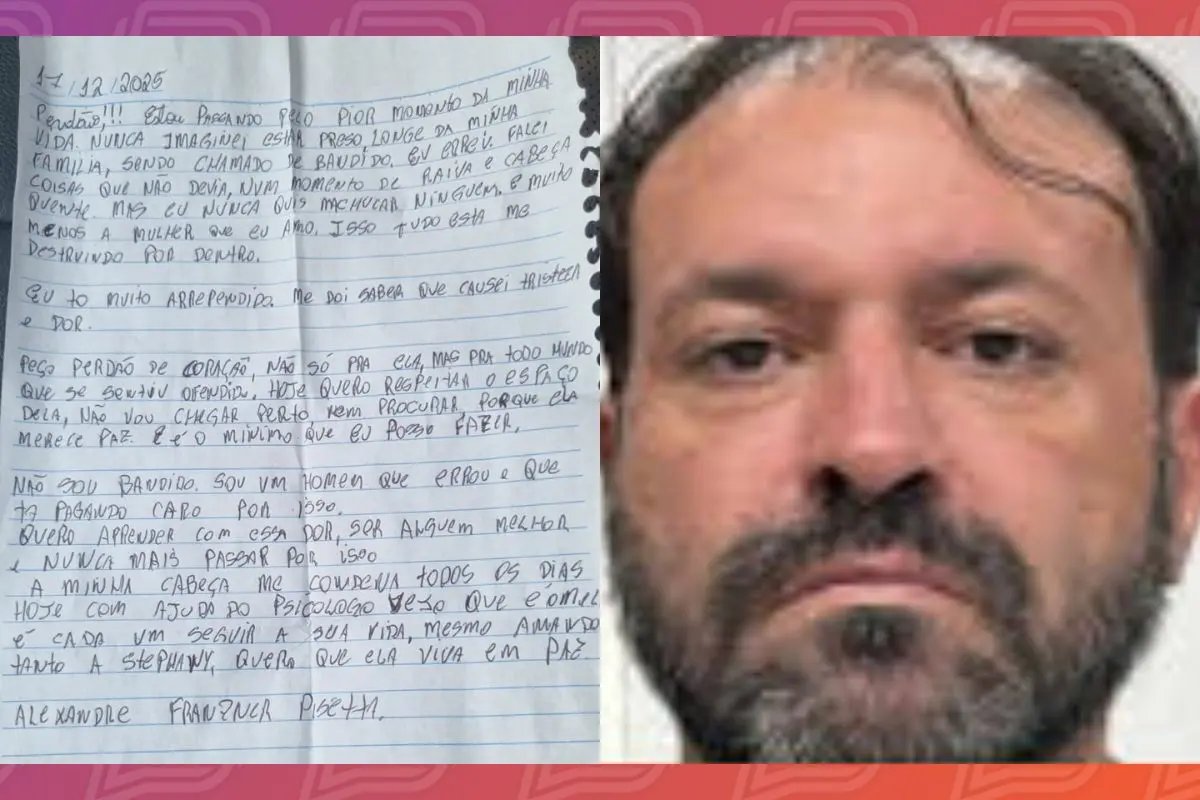 17/12/2025
Perdão!!! Estou PASSANDO PELO PIOR MOMENTO DA MINHA
VIDA. NUNCA IMAGINEI ESTAR PRESO, LONGE DA MINHA
FAMILIA, SENDO CHAMADO DE BANDIDO. EU ERREI. FALEI
COISAS QUE NÃO DEVIA, NUM MOMENTO DE RAIVA E CABEÇA
QUENTE. MAS EU NUNCA QUIS MACHUCAR NINGUEM. E MUITO
MENOS A MULHER QUE EU AMO. ISSO TUDO ESTA ME
DESTRUINDO POR DENTRO.
EU TO MUITO ARREPENDIDO. ME DOI SABER QUE CAUSEI TRISTEZA
E DOR.
PEÇO PERDÃO DE CORAÇÃO, NÃO SÓ PRA ELA, MAS PRA TODO MUNDO
QUE SE SENTIU OFENDIDO. HOJE QUERO RESPEITAR O ESPAÇO
DELA, NÃO VOU CHEGAR PERTO, NEM PROCURAR, PORQUE ELA
MERECE PAZ. E É O MINIMO QUE EU POSSO FAZER.
NÃO SOU BANDIDO. SOU UM HOMEM QUE ERROU E QUE
TA PAGANDO CARO POR ISSO.
QUERO APRENDER COM ESSA DOR, SER ALGUEM MELHOR
E NUNCA MAIS PASSAR POR ISSO
A MINHA CABEÇA ME CONDENA TODOS OS DIAS
HOJE COM AJUDA DO PSICOLOGO VEJO QUE E O MEL
É CADA UM SEGUIR A SUA VIDA, MESMO AMANDO
TANTO A STEPHANY, QUERO QUE ELA VIVA EM PAZ
ALEXANDRE FRANZNER PISETTA.